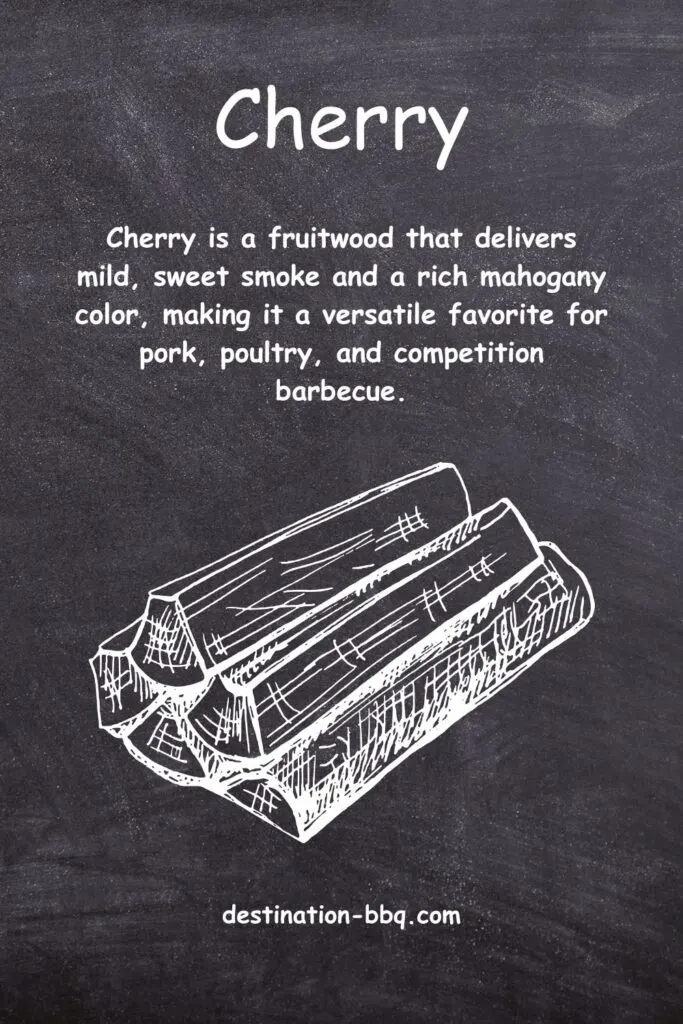 Cherry
Cherry is a fruitwood that delivers
mild, sweet smoke and a rich mahogany
color, making it a versatile favorite for
pork, poultry, and competition
barbecue.
destination-bbq.com